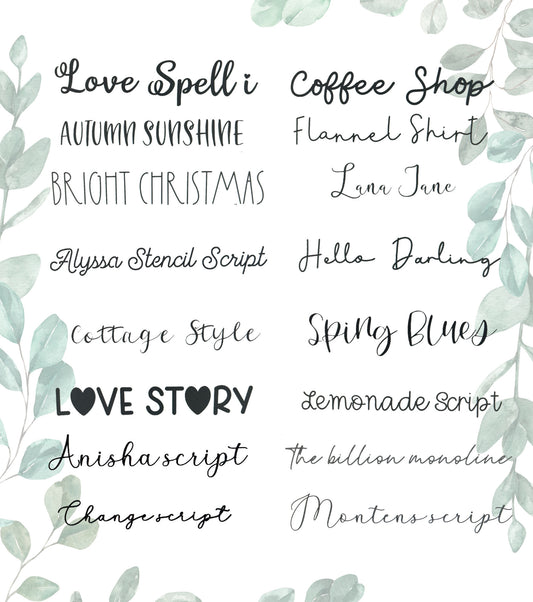 Love Spell i
Coffee Shop
AUTUMN SUNSHINE
Flannel Shirt
BRIGHT CHRISTMAS
Lana Jane
Alyssa Stencil Script
Hello Darling
Cottage Style
Sping Blues
L♥VE ST♥RY
Lemonade Script
Anisha script
The billion monoline
Change script
Montens script